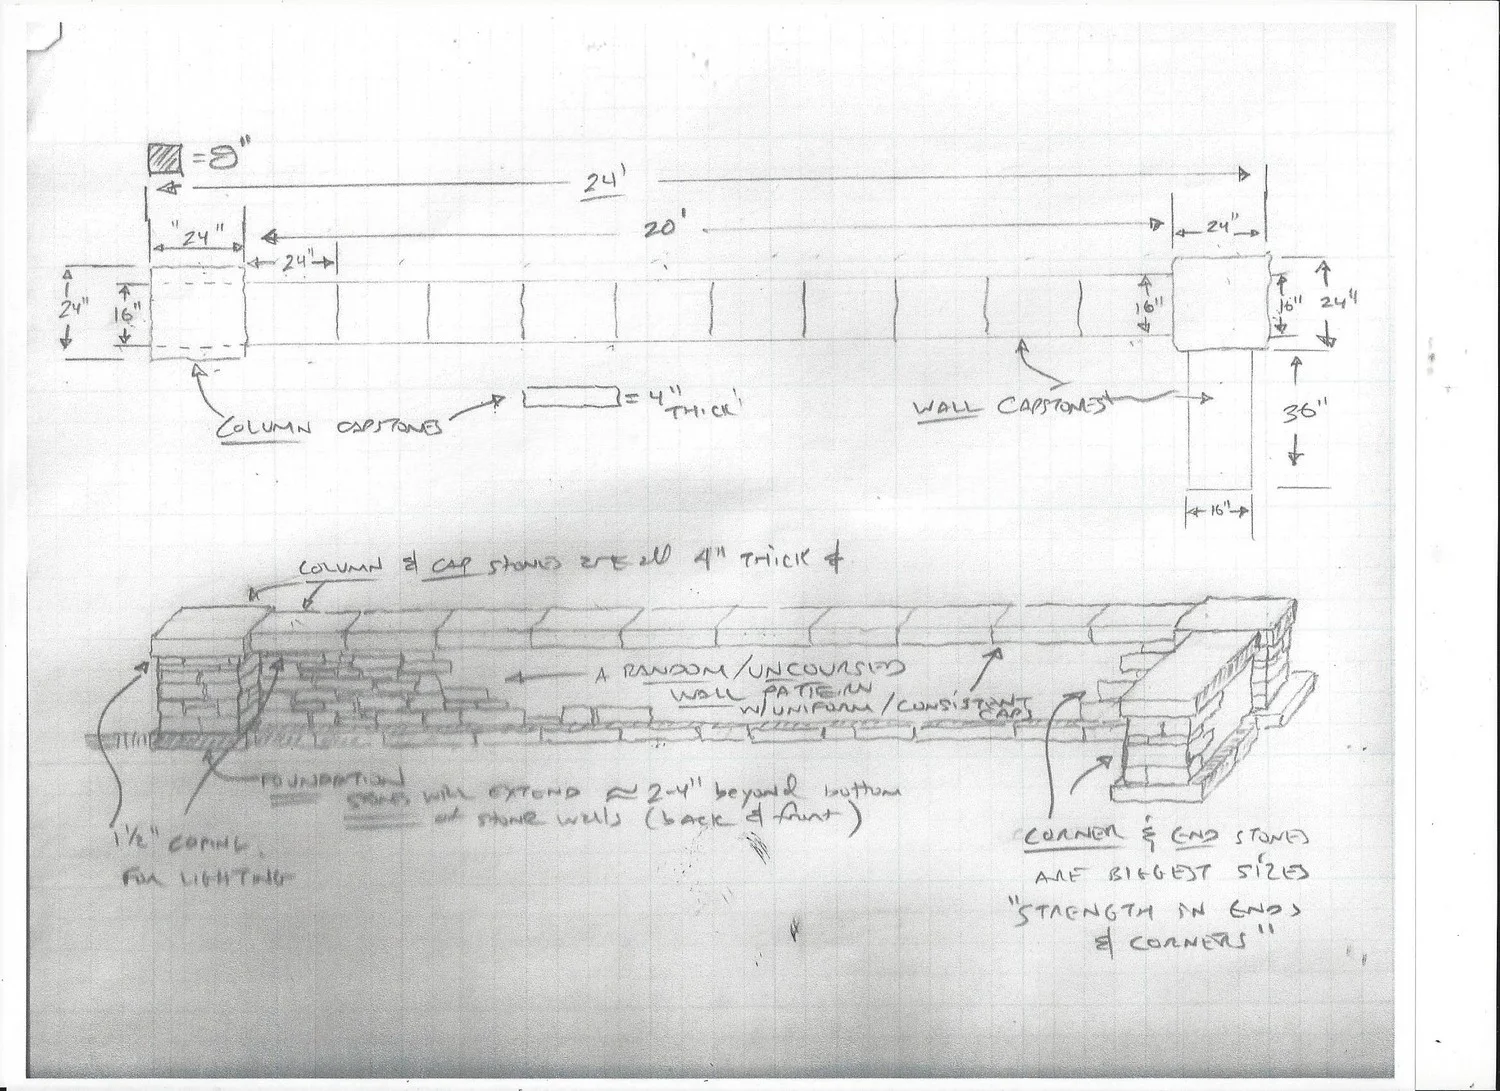 = 8"
24'
20'
"24"
24"
24"
24"
16"
16"
16"
24"
COLUMN CAPSTONES
= 4"
THICK
WALL CAPSTONES
36"
16"
COLUMN & CAP STONES are all 4" THICK &
A RANDOM/UNCOURSED
WALL PATTERN
W/UNIFORM/CONSISTENT
CAPS
FOUNDATION
STONES WILL EXTEND ≈ 2-4" beyond bottom
of STONE WALLS (back & front)
1 1/2" COPING
FOR LIGHTING
CORNER & END STONES
ARE BIGGEST SIZES
"STRENGTH IN ENDS
& CORNERS"